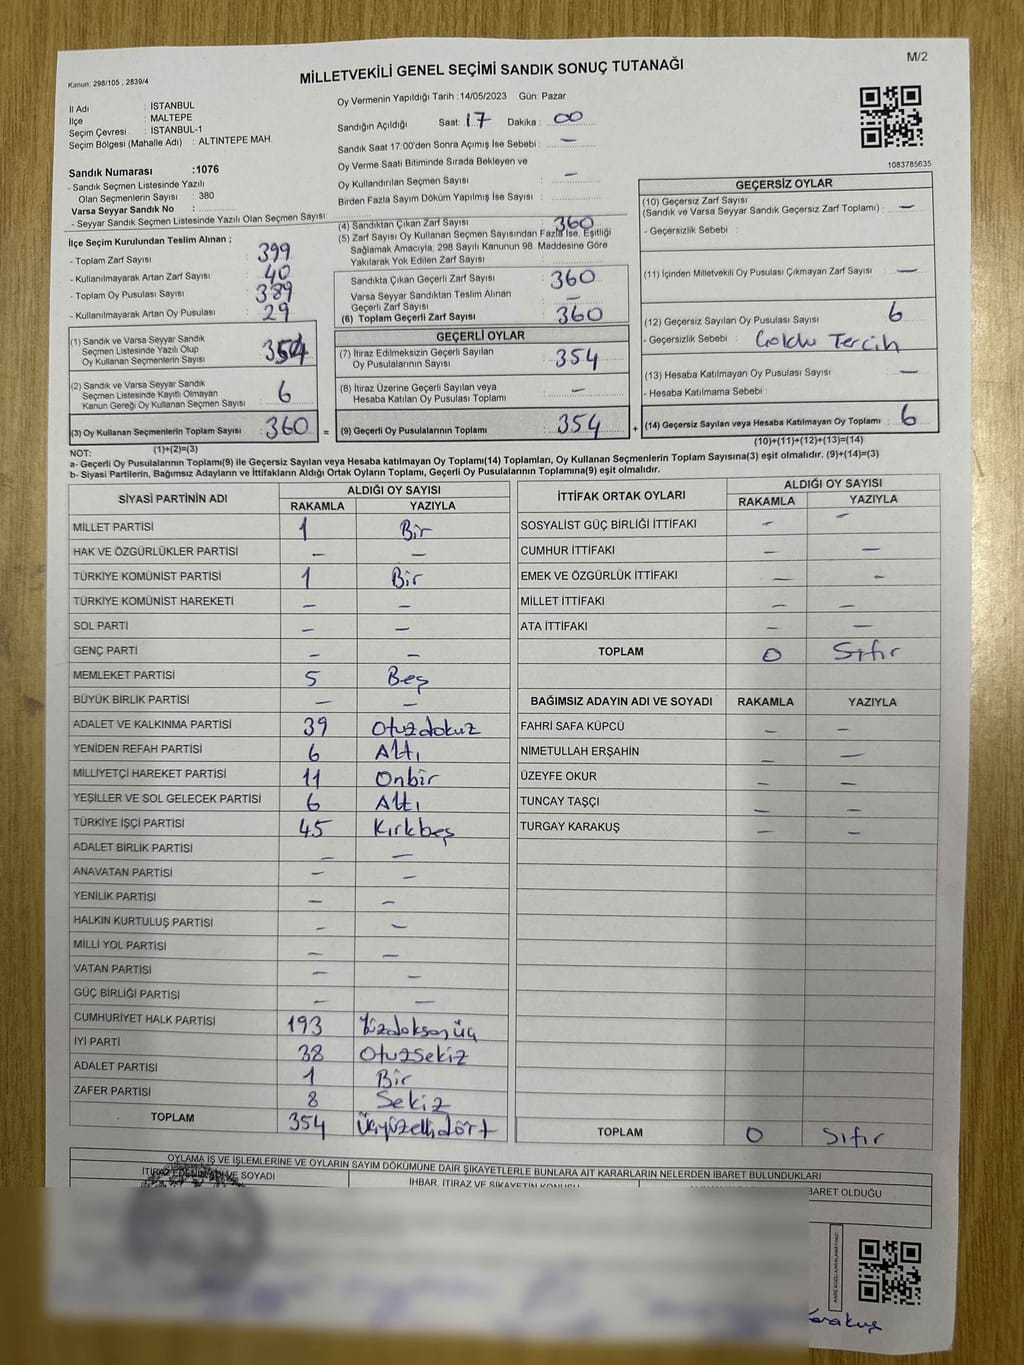 M/2
Kanun: 298/105 , 2839/4
MİLLETVEKİLİ GENEL SEÇİMİ SANDIK SONUÇ TUTANAĞI
İl Adı : İSTANBUL
İlçe : MALTEPE
Seçim Çevresi : İSTANBUL-1
Seçim Bölgesi (Mahalle Adı) : ALTINTEPE MAH.
Sandık Numarası :1076
- Sandık Seçmen Listesinde Yazılı
Olan Seçmenlerin Sayısı : 380
Varsa Seyyar Sandık No :
- Seyyar Sandık Seçmen Listesinde Yazılı Olan Seçmen Sayısı:
Oy Vermenin Yapıldığı Tarih :14/05/2023 Gün: Pazar
Sandığın Açıldığı Saat: 17 Dakika : 00
Sandık Saat 17:00'den Sonra Açmış İse Sebebi : —
Oy Verme Saati Bitiminde Sırada Bekleyen ve
Oy Kullandırılan Seçmen Sayısı : —
Birden Fazla Sayım Döküm Yapılmış İse Sayısı :
1083785635
İlçe Seçim Kurulundan Teslim Alınan ;
- Toplam Zarf Sayısı : 399
- Kullanılmayarak Artan Zarf Sayısı : 40
- Toplam Oy Pusulası Sayısı : 389
- Kullanılmayarak Artan Oy Pusulası : 29
(1) Sandık ve Varsa Seyyar Sandık
Seçmen Listesinde Yazılı Olup
Oy Kullanan Seçmenlerin Sayısı : 354
(2) Sandık ve Varsa Seyyar Sandık
Seçmen Listesinde Kayıtlı Olmayan
Kanun Gereği Oy Kullanan Seçmen Sayısı : 6
(3) Oy Kullanan Seçmenlerin Toplam Sayısı : 360
(1)+(2)=(3)
(4) Sandıktan Çıkan Zarf Sayısı : 360
(5) Zarf Sayısı Oy Kullanan Seçmen Sayısından Fazla İse, Eşitliği
Sağlamak Amacıyla, 298 Sayılı Kanunun 98. Maddesine Göre
Yakılarak Yok Edilen Zarf Sayısı :
Sandıkta Çıkan Geçerli Zarf Sayısı : 360
Varsa Seyyar Sandıktan Teslim Alınan
Geçerli Zarf Sayısı : —
(6) Toplam Geçerli Zarf Sayısı : 360
GEÇERLİ OYLAR
(7) İtiraz Edilmeksizin Geçerli Sayılan
Oy Pusulalarının Sayısı : 354
(8) İtiraz Üzerine Geçerli Sayılan veya
Hesaba Katılan Oy Pusulası Toplamı : —
= (9) Geçerli Oy Pusulalarının Toplamı : 354
GEÇERSİZ OYLAR
(10) Geçersiz Zarf Sayısı
(Sandık ve Varsa Seyyar Sandık Geçersiz Zarf Toplamı) : —
- Geçersizlik Sebebi :
(11) İçinden Milletvekili Oy Pusulası Çıkmayan Zarf Sayısı : —
(12) Geçersiz Sayılan Oy Pusulası Sayısı : 6
- Geçersizlik Sebebi : Çoklu Tercih
(13) Hesaba Katılmayan Oy Pusulası Sayısı : —
- Hesaba Katılmama Sebebi :
+ (14) Geçersiz Sayılan veya Hesaba Katılmayan Oy Toplamı : 6
(10)+(11)+(12)+(13)=(14)
NOT:
a- Geçerli Oy Pusulalarının Toplamı(9) ile Geçersiz Sayılan veya Hesaba katılmayan Oy Toplamı(14) Toplamları, Oy Kullanan Seçmenlerin Toplam Sayısına(3) eşit olmalıdır. (9)+(14)=(3)
b- Siyasi Partilerin, Bağımsız Adayların ve İttifakların Aldığı Ortak Oyların Toplamı, Geçerli Oy Pusulalarının Toplamına(9) eşit olmalıdır.
SİYASİ PARTİNİN ADI ALDIĞI OY SAYISI
RAKAMLA YAZIYLA
MİLLET PARTİSİ 1 Bir
HAK VE ÖZGÜRLÜKLER PARTİSİ — —
TÜRKİYE KOMÜNİST PARTİSİ 1 Bir
TÜRKİYE KOMÜNİST HAREKETİ — —
SOL PARTİ — —
GENÇ PARTİ — —
MEMLEKET PARTİSİ 5 Beş
BÜYÜK BİRLİK PARTİSİ — —
ADALET VE KALKINMA PARTİSİ 39 Otuzdokuz
YENİDEN REFAH PARTİSİ 6 Altı
MİLLİYETÇİ HAREKET PARTİSİ 11 Onbir
YEŞİLLER VE SOL GELECEK PARTİSİ 6 Altı
TÜRKİYE İŞÇİ PARTİSİ 45 Kırkbeş
ADALET BİRLİK PARTİSİ — —
ANAVATAN PARTİSİ — —
YENİLİK PARTİSİ — —
HALKIN KURTULUŞ PARTİSİ — —
MİLLİ YOL PARTİSİ — —
VATAN PARTİSİ — —
GÜÇ BİRLİĞİ PARTİSİ — —
CUMHURİYET HALK PARTİSİ 193 Yüzdoksanüç
İYİ PARTİ 38 Otuzsekiz
ADALET PARTİSİ 1 Bir
ZAFER PARTİSİ 8 Sekiz
TOPLAM 354 Üçyüzellidört
İTTİFAK ORTAK OYLARI ALDIĞI OY SAYISI
RAKAMLA YAZIYLA
SOSYALİST GÜÇ BİRLİĞİ İTTİFAKI — —
CUMHUR İTTİFAKI — —
EMEK VE ÖZGÜRLÜK İTTİFAKI — —
MİLLET İTTİFAKI — —
ATA İTTİFAKI — —
TOPLAM 0 Sıfır
BAĞIMSIZ ADAYIN ADI VE SOYADI RAKAMLA YAZIYLA
FAHRİ SAFA KÜPCÜ — —
NİMETULLAH ERŞAHİN — —
ÜZEYFE OKUR — —
TUNCAY TAŞÇI — —
TURGAY KARAKUŞ — —
TOPLAM 0 Sıfır
OYLAMA İŞ VE İŞLEMLERİNE VE OYLARIN SAYIM DÖKÜMÜNE DAİR ŞİKAYETLERLE BUNLARA AİT KARARLARIN NELERDEN İBARET BULUNDUKLARI
İTİRAZ EDENİN ADI VE SOYADI
İHBAR, İTİRAZ VE ŞİKAYETİN KONUSU
BARET OLDUĞU
Karakuş